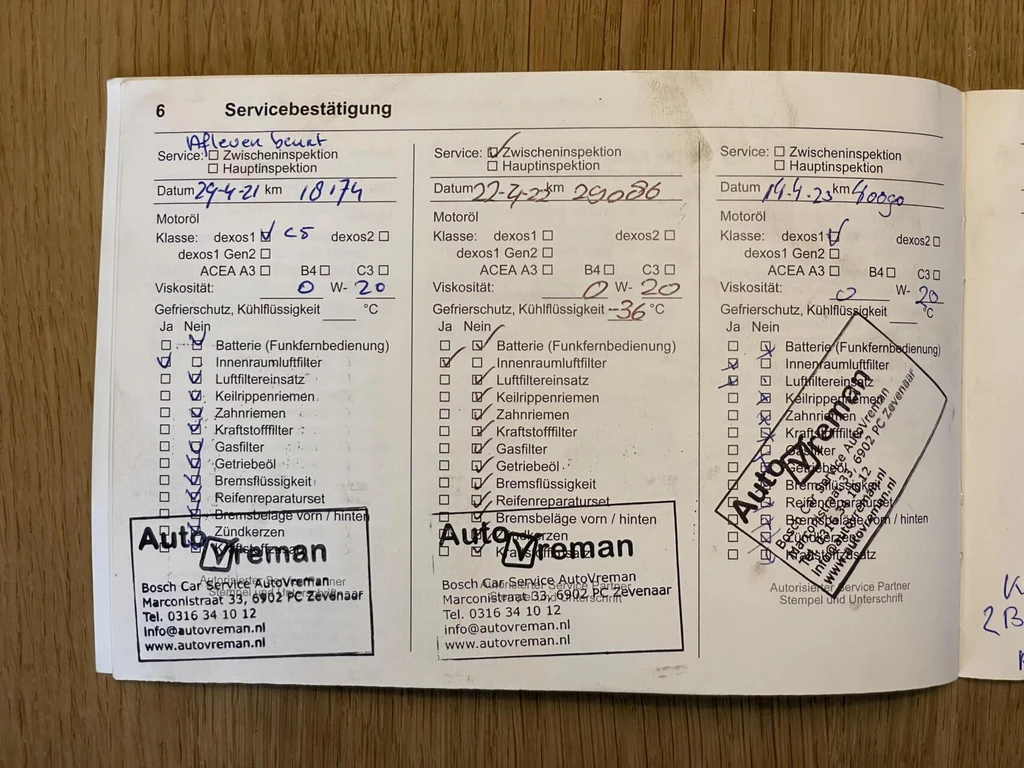 6 Servicebestätigung
Afleven beurt
Service: Zwischeninspektion
Hauptinspektion
Datum 29-4-21 km 18174
Motoröl
Klasse: dexos1 C5 dexos2
dexos1 Gen2
ACEA A3 B4 C3
Viskosität: 0 W- 20
Gefrierschutz, Kühlflüssigkeit °C
Ja Nein
Batterie (Funkfernbedienung)
Innenraumluftfilter
Luftfiltereinsatz
Keilrippenriemen
Zahnriemen
Kraftstofffilter
Gasfilter
Getriebeöl
Bremsflüssigkeit
Reifenreparaturset
Bremsbeläge vorn / hinten
Zündkerzen
Auto Vreman
Autorisierter Service Partner
Stempel und Unterschrift
Bosch Car Service AutoVreman
Marconistraat 33, 6902 PC Zevenaar
Tel. 0316 34 10 12
info@autovreman.nl
www.autovreman.nl
Service: Zwischeninspektion
Hauptinspektion
Datum 22-4-22 km 29086
Motoröl
Klasse: dexos1 dexos2
dexos1 Gen2
ACEA A3 B4 C3
Viskosität: 0 W- 20
Gefrierschutz, Kühlflüssigkeit -36 °C
Ja Nein
Batterie (Funkfernbedienung)
Innenraumluftfilter
Luftfiltereinsatz
Keilrippenriemen
Zahnriemen
Kraftstofffilter
Gasfilter
Getriebeöl
Bremsflüssigkeit
Reifenreparaturset
Bremsbeläge vorn / hinten
Zündkerzen
Kraftstoffzusatz
Auto Vreman
Autorisierter Service Partner
Stempel und Unterschrift
Bosch Car Service AutoVreman
Marconistraat 33, 6902 PC Zevenaar
Tel. 0316 34 10 12
info@autovreman.nl
www.autovreman.nl
Service: Zwischeninspektion
Hauptinspektion
Datum 14-4-23 km 40090
Motoröl
Klasse: dexos1 dexos2
dexos1 Gen2
ACEA A3 B4 C3
Viskosität: 0 W- 20
Gefrierschutz, Kühlflüssigkeit °C
Ja Nein
Batterie (Funkfernbedienung)
Innenraumluftfilter
Luftfiltereinsatz
Keilrippenriemen
Zahnriemen
Kraftstofffilter
Gasfilter
Getriebeöl
Bremsflüssigkeit
Reifenreparaturset
Bremsbeläge vorn / hinten
Zündkerzen
Kraftstoffzusatz
Autorisierter Service Partner
Stempel und Unterschrift
Auto Vreman
Bosch Car Service AutoVreman
Marconistraat 33, 6902 PC Zevenaar
Tel. 0316 34 10 12
info@autovreman.nl
www.autovreman.nl
K
2B